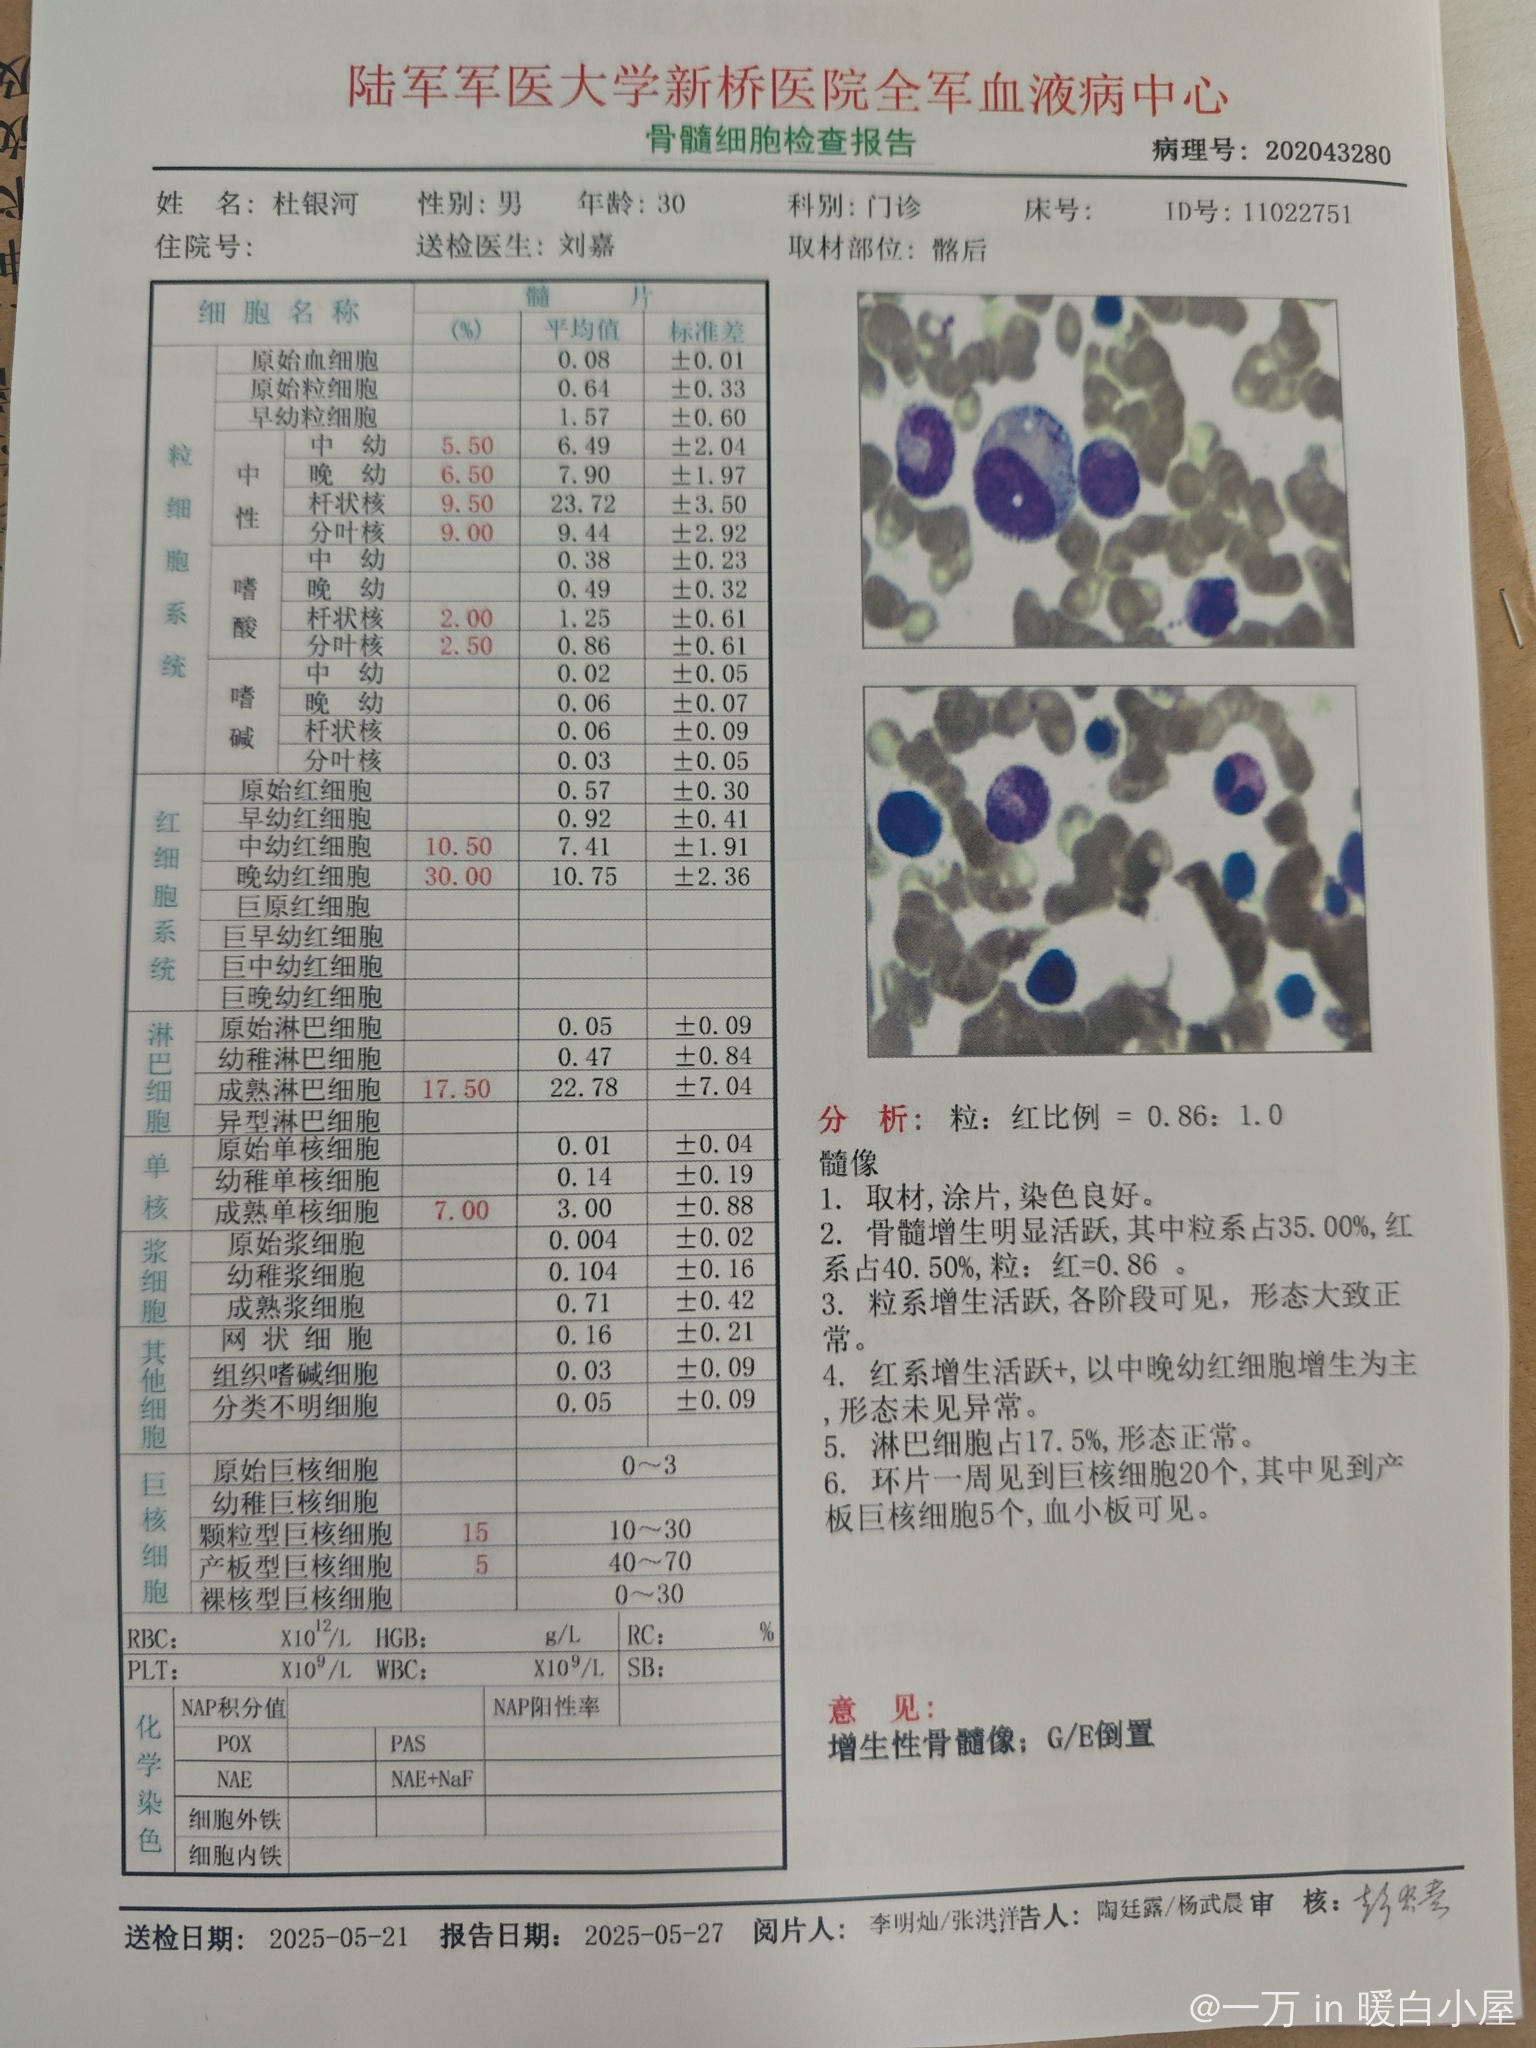 陆军军医大学新桥医院全军血液病中心
骨髓细胞检查报告
病理号: 202043280
姓 名: 杜银河 性别: 男 年龄: 30 科别: 门诊 床号: ID号: 11022751
住院号: 送检医生: 刘嘉 取材部位: 髂后
细胞名称 髓 片
(%) 平均值 标准差
粒细胞系统
原始血细胞 0.08 ±0.01
原始粒细胞 0.64 ±0.33
早幼粒细胞 1.57 ±0.60
中性
中 幼 5.50 6.49 ±2.04
晚 幼 6.50 7.90 ±1.97
杆状核 9.50 23.72 ±3.50
分叶核 9.00 9.44 ±2.92
嗜酸
中 幼 0.38 ±0.23
晚 幼 0.49 ±0.32
杆状核 2.00 1.25 ±0.61
分叶核 2.50 0.86 ±0.61
嗜碱
中 幼 0.02 ±0.05
晚 幼 0.06 ±0.07
杆状核 0.06 ±0.09
分叶核 0.03 ±0.05
红细胞系统
原始红细胞 0.57 ±0.30
早幼红细胞 0.92 ±0.41
中幼红细胞 10.50 7.41 ±1.91
晚幼红细胞 30.00 10.75 ±2.36
巨原红细胞
巨早幼红细胞
巨中幼红细胞
巨晚幼红细胞
淋巴细胞
原始淋巴细胞 0.05 ±0.09
幼稚淋巴细胞 0.47 ±0.84
成熟淋巴细胞 17.50 22.78 ±7.04
异型淋巴细胞
单核
原始单核细胞 0.01 ±0.04
幼稚单核细胞 0.14 ±0.19
成熟单核细胞 7.00 3.00 ±0.88
浆细胞
原始浆细胞 0.004 ±0.02
幼稚浆细胞 0.104 ±0.16
成熟浆细胞 0.71 ±0.42
其他细胞
网状细胞 0.16 ±0.21
组织嗜碱细胞 0.03 ±0.09
分类不明细胞 0.05 ±0.09
巨核细胞
原始巨核细胞 0～3
幼稚巨核细胞
颗粒型巨核细胞 15 10～30
产板型巨核细胞 5 40～70
裸核型巨核细胞 0～30
RBC: X10¹²/L HGB: g/L RC: %
PLT: X10⁹/L WBC: X10⁹/L SB:
化学染色
NAP积分值 NAP阳性率
POX PAS
NAE NAE+NaF
细胞外铁
细胞内铁
分 析: 粒: 红比例 = 0.86: 1.0
髓像
1. 取材,涂片,染色良好。
2. 骨髓增生明显活跃,其中粒系占35.00%,红
系占40.50%,粒: 红=0.86 。
3. 粒系增生活跃,各阶段可见, 形态大致正
常。
4. 红系增生活跃+,以中晚幼红细胞增生为主
,形态未见异常。
5. 淋巴细胞占17.5%,形态正常。
6. 环片一周见到巨核细胞20个,其中见到产
板巨核细胞5个,血小板可见。
意 见:
增生性骨髓像; G/E倒置
送检日期: 2025-05-21 报告日期: 2025-05-27 阅片人: 李明灿/张洪洋告人: 陶廷露/杨武晨 审 核:
@一万 in 暖白小屋